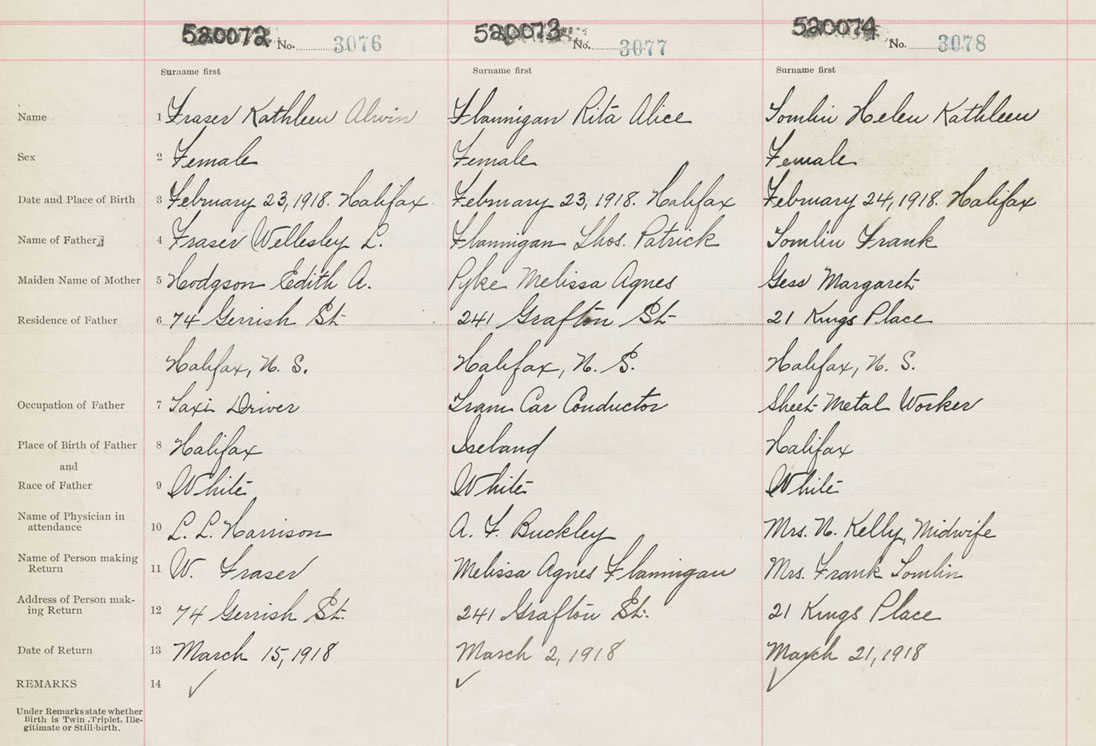 520072 No. 3076 520073 No. 3077 520074 No. 3078
Surname first Surname first Surname first
Name 1 Fraser Kathleen Alwin Flannigan Rita Alice Tomlin Helen Kathleen
Sex 2 Female Female Female
Date and Place of Birth 3 February 23, 1918. Halifax February 23, 1918. Halifax February 24, 1918. Halifax
Name of Father 4 Fraser Wellesley L. Flannigan Thos. Patrick Tomlin Frank
Maiden Name of Mother 5 Hodgson Edith A. Pyke Melissa Agnes Gess Margaret
Residence of Father 6 74 Gerrish St. 241 Grafton St. 21 Kings Place
Halifax, N. S. Halifax, N. S. Halifax, N. S.
Occupation of Father 7 Taxi Driver Tram Car Conductor Sheet Metal Worker
Place of Birth of Father 8 Halifax Iseland Halifax
and
Race of Father 9 White White White
Name of Physician in
attendance 10 L. L. Harrison A. F. Buckley Mrs. N. Kelly, Midwife
Name of Person making
Return 11 W. Fraser Melissa Agnes Flannigan Mrs. Frank Tomlin
Address of Person mak-
ing Return 12 74 Gerrish St. 241 Grafton St. 21 Kings Place
Date of Return 13 March 15, 1918 March 2, 1918 March 21, 1918
REMARKS 14
Under Remarks state whether
Birth is Twin, Triplet, Ille-
gitimate or Still-birth.